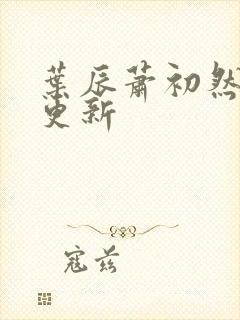 葉辰蕭初然
更新
寇茲